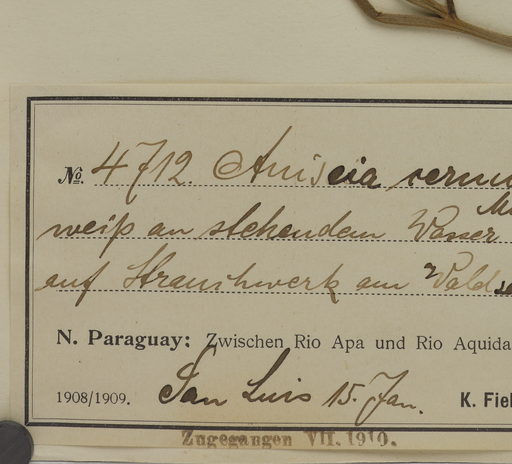 № 4712. Aniseia cernu
weiß an stehendem Wasser
auf Strauchwerk am Waldse
N. Paraguay: Zwischen Rio Apa und Rio Aquida
1908/1909. San Luis 15. Jan. K. Fiel
Zugegangen VII. 1910.